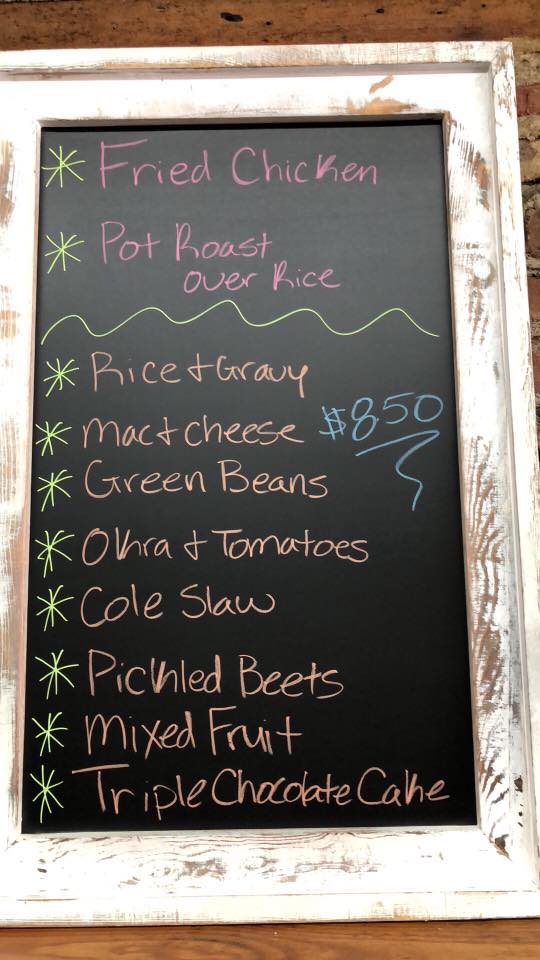 * Fried Chicken
* Pot Roast
over Rice
* Rice + Gravy
* Mac + cheese $850
* Green Beans
* Okra + Tomatoes
* Cole Slaw
* Pickled Beets
* Mixed Fruit
* Triple Chocolate Cake